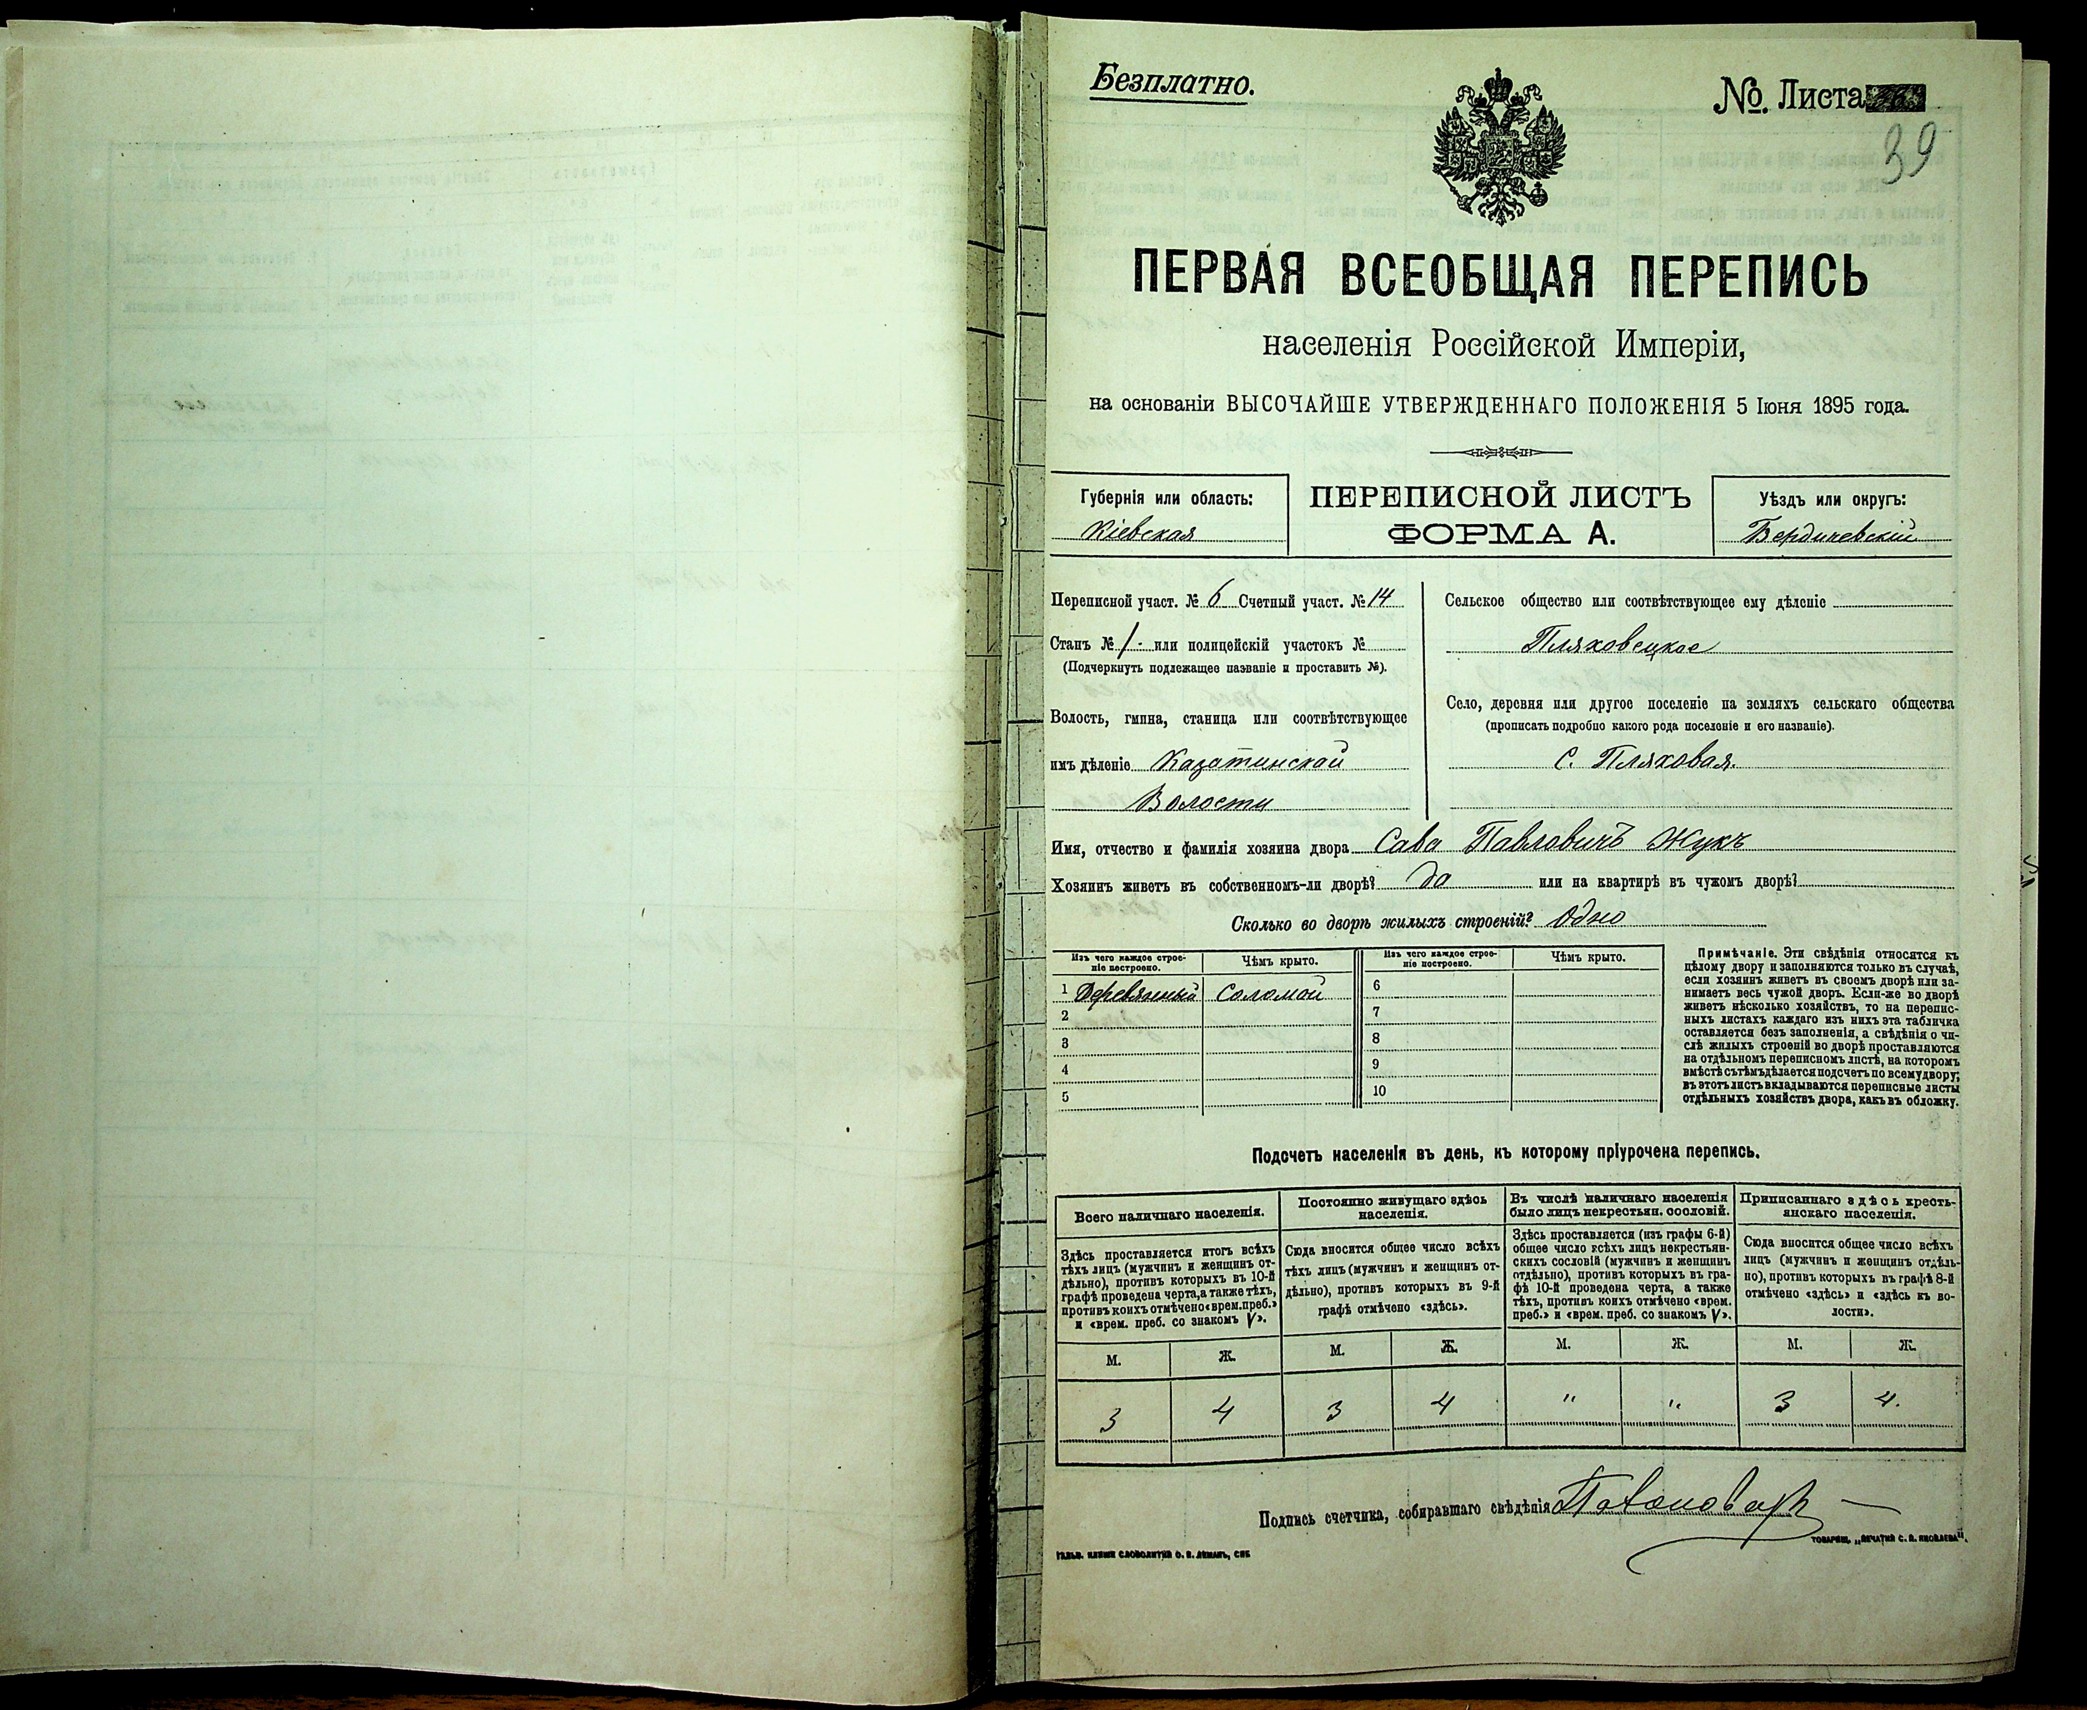 Безплатно.
№. Листа
39
ПЕРВАЯ ВСЕОБЩАЯ ПЕРЕПИСЬ
населенія Россійской Имперіи,
на основаніи ВЫСОЧАЙШЕ УТВЕРЖДЕННАГО ПОЛОЖЕНІЯ 5 Іюня 1895 года.
Губернія или область:
Кіевская
ПЕРЕПИСНОЙ ЛИСТЪ
ФОРМА А.
Уѣздъ или округъ:
Бердичевскій
Переписной участ. № 6 Счетный участ. № 14
Станъ № 1 или полицейскій участокъ №
(Подчеркнуть подлежащее названіе и проставить №).
Волость, гмина, станица или соотвѣтствующее
имъ дѣленіе Казатинской
Волости
Сельское общество или соотвѣтствующее ему дѣленіе
Пляховецкое
Село, деревня или другое поселеніе на земляхъ сельскаго общества
(прописать подробно какого рода поселеніе и его названіе).
С. Пляховая.
Имя, отчество и фамилія хозяина двора Сава Павловичъ Жукъ
Хозяинъ живетъ въ собственномъ-ли дворѣ? да или на квартирѣ въ чужомъ дворѣ?
Сколько во дворѣ жилыхъ строеній? Одно
Изъ чего каждое строе-
ніе построено.
Чѣмъ крыто.
Изъ чего каждое строе-
ніе построено.
Чѣмъ крыто.
1 Деревянный Соломой 6
2 7
3 8
4 9
5 10
Примѣчаніе. Эти свѣдѣнія относятся къ
цѣлому двору и заполняются только въ случаѣ,
если хозяинъ живетъ въ своемъ дворѣ или за-
нимаетъ весь чужой дворъ. Если-же во дворѣ
живетъ нѣсколько хозяйствъ, то на перепис-
ныхъ листахъ каждаго изъ нихъ эта табличка
оставляется безъ заполненія, а свѣдѣнія о чи-
слѣ жилыхъ строеній во дворѣ проставляются
на отдѣльномъ переписномъ листѣ, на которомъ
вмѣстѣ съ тѣмъ дѣлается подсчетъ по всему двору;
въ этотъ листъ вкладываются переписные листы
отдѣльныхъ хозяйствъ двора, какъ въ обложку.
Подсчетъ населенія въ день, къ которому пріурочена перепись.
Всего наличнаго населенія.
Постоянно живущаго здѣсь
населенія.
Въ числѣ наличнаго населенія
было лицъ некрестьян. сословій.
Приписаннаго здѣсь кресть-
янскаго населенія.
Здѣсь проставляется итогъ всѣхъ
тѣхъ лицъ (мужчинъ и женщинъ от-
дѣльно), противъ которыхъ въ 10-й
графѣ проведена черта, а также тѣхъ,
противъ коихъ отмѣчено «врем. преб.»
и «врем. преб. со знакомъ V».
Сюда вносится общее число всѣхъ
тѣхъ лицъ (мужчинъ и женщинъ от-
дѣльно), противъ которыхъ въ 9-й
графѣ отмѣчено «здѣсь».
Здѣсь проставляется (изъ графы 6-й)
общее число всѣхъ лицъ некрестьян-
скихъ сословій (мужчинъ и женщинъ
отдѣльно), противъ которыхъ въ гра-
фѣ 10-й проведена черта, а также
тѣхъ, противъ коихъ отмѣчено «врем.
преб.» и «врем. преб. со знакомъ V».
Сюда вносится общее число всѣхъ
лицъ (мужчинъ и женщинъ отдѣль-
но), противъ которыхъ въ графѣ 8-й
отмѣчено «здѣсь» и «здѣсь къ во-
лости».
М. Ж. М. Ж. М. Ж. М. Ж.
3 4 3 4 " " 3 4.
Подпись счетчика, собиравшаго свѣдѣнія
ГАЛЬВ. КЛИШЕ СЛОВОЛИТНИ О. И. ЛЕМАНЪ, СПБ.
ТОВАРИЩ. „ПЕЧАТНЯ С. П. ЯКОВЛЕВА".